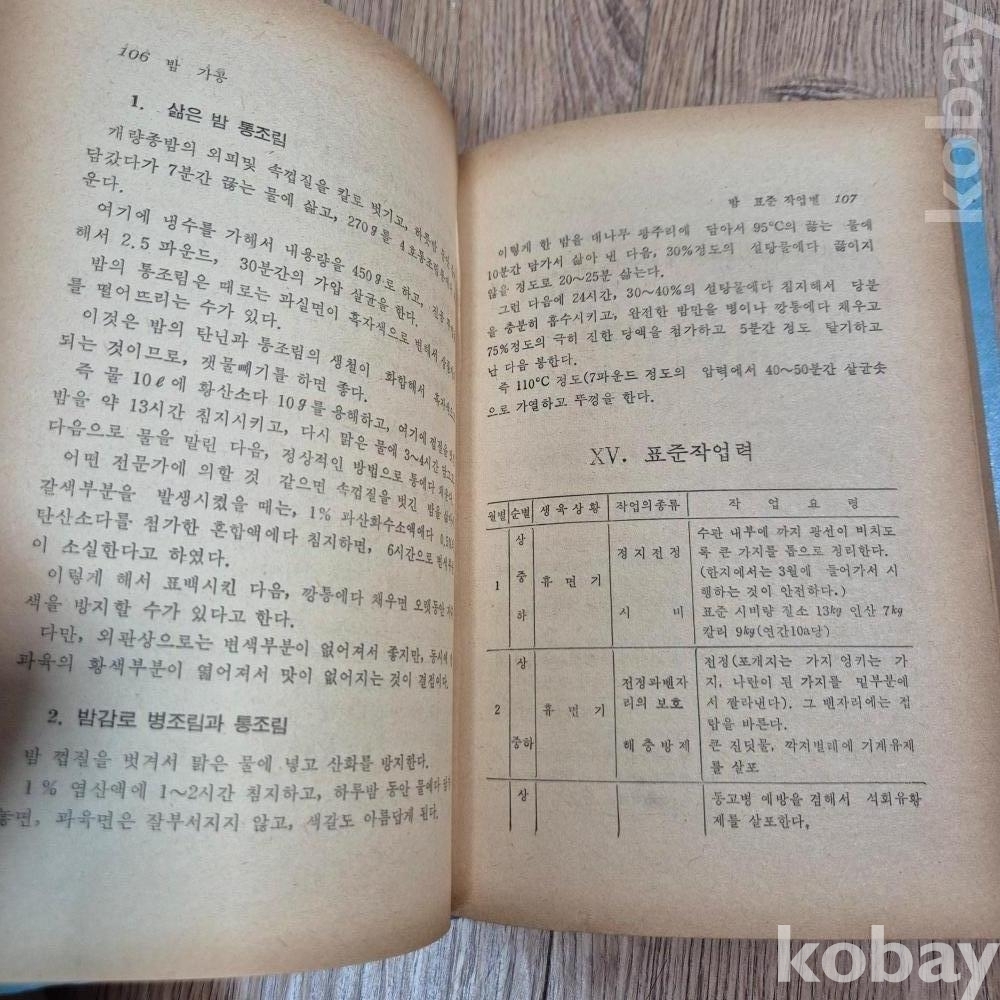 106 밤 가공
1. 삶은 밤 통조림
개량종밤의 외피및 속껍질을 칼로 벗기고, 하룻밤
담갔다가 7분간 끓는 물에 삶고, 270g를 4호통조림통에
운다.
여기에 냉수를 가해서 내용량을 450g로 하고,
해서 2.5 파운드, 30분간의 가압 살균을 한다.
밤의 통조림은 때로는 과실면이 흑자색으로 변해서
를 떨어뜨리는 수가 있다.
이것은 밤의 탄닌과 통조림의 생철이 화합해서
되는 것이므로, 갯물빼기를 하면 좋다.
즉 물 10ℓ에 황산소다 10g를 용해하고, 여기에
밤을 약 13시간 침지시키고, 다시 맑은 물에 3~4시간
다음으로 물을 말린 다음, 정상적인 방법으로 통에다
어떤 전문가에 의할 것 같으면 속껍질을 벗긴 밤을
갈색부분을 발생시켰을 때는, 1% 과산화수소액에다
탄산소다를 첨가한 혼합액에다 침지하면, 6시간으로
이 소실한다고 하였다.
이렇게 해서 표백시킨 다음, 깡통에다 채우면 오랫동안
색을 방지할 수가 있다고 한다.
다만, 외관상으로는 변색부분이 없어져서 좋지만, 동시에
과육의 황색부분이 엷어져서 맛이 없어지는 것이 결점이다.
2. 밤감로 병조림과 통조림
밤 껍질을 벗겨서 맑은 물에 넣고 산화를 방지한다.
1% 염산액에 1~2시간 침지하고, 하루밤 동안 물에다
놓면, 과육면은 잘부서지지 않고, 색깔도 아름답게 된다.
밤 표준 작업별 107
이렇게 한 밤을 대나무 광주리에 담아서 95°C의 끓는 물에
10분간 담가서 삶아 낸 다음, 30%정도의 설탕물에다 끓이지
않을 정도로 20~25분 삶는다.
그런 다음에 24시간, 30~40%의 설탕물에다 침지해서 당분
을 충분히 흡수시키고, 완전한 밤만을 병이나 깡통에다 채우고
75%정도의 극히 진한 당액을 첨가하고 5분간 정도 탈기하고
난 다음 봉한다.
즉 110°C 정도(7파운드 정도의 압력에서 40~50분간 살균솟
으로 가열하고 뚜껑을 한다.
XV. 표준작업력
월별 순별 생육상황 작업의종류 작업요령
1 상 중 하 휴면기 정지전정 수관 내부에 까지 광선이 비치도
록 큰 가지를 톱으로 정리한다.
(한지에서는 3월에 들어가서 시
행하는 것이 안전하다.)
시비 표준 시비량 질소 13kg 인산 7kg
칼리 9kg(연간10a당)
2 상 중하 휴면기 전정과벤자 리의 보호 전정(포개지는 가지 엉키는 가
지, 나란이 된 가지를 밑부분에
서 짤라낸다). 그 벤자리에는 접
랍을 바른다.
해충방제 큰 진딧물, 깍지벌레에 기계유제
를 살포
상 동고병 예방을 겸해서 석회유황
제를 살포한다.
kobay
kobay
kobay